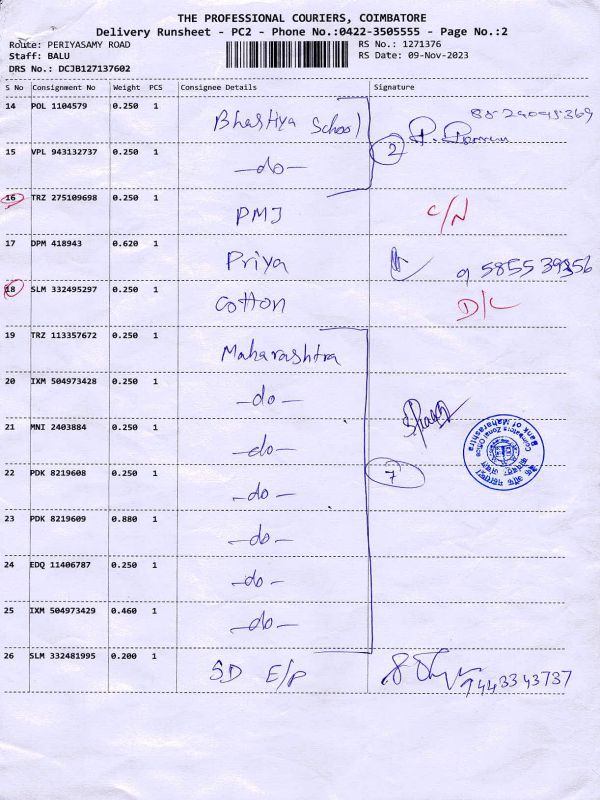 THE PROFESSIONAL COURIERS, COIMBATORE
Delivery Runsheet - PC2 - Phone No.:0422-3505555 - Page No.:2
Route: PERIYASAMY ROAD RS No.: 1271376
Staff: BALU RS Date: 09-Nov-2023
DRS No.: DCJB127137602
S No Consignment No Weight PCS Consignee Details Signature
14 POL 1104579 0.250 1 Bhastiya School
15 VPL 943132737 0.250 1 -do- 2
16 TRZ 275109698 0.250 1 PMJ C/N
17 DPM 418943 0.620 1 Priya
18 SLM 332495297 0.250 1 Cotton D/L
19 TRZ 113357672 0.250 1 Maharashtra
20 IXM 504973428 0.250 1 -do-
21 MNI 2403884 0.250 1 -do-
Bank of Maharashtra
Coimbatore Zonal Office
22 PDK 8219608 0.250 1 -do- 7
23 PDK 8219609 0.880 1 -do-
24 EDQ 11406787 0.250 1 -do-
25 IXM 504973429 0.460 1 -do-
26 SLM 332481995 0.200 1 SD E/P 9443343737